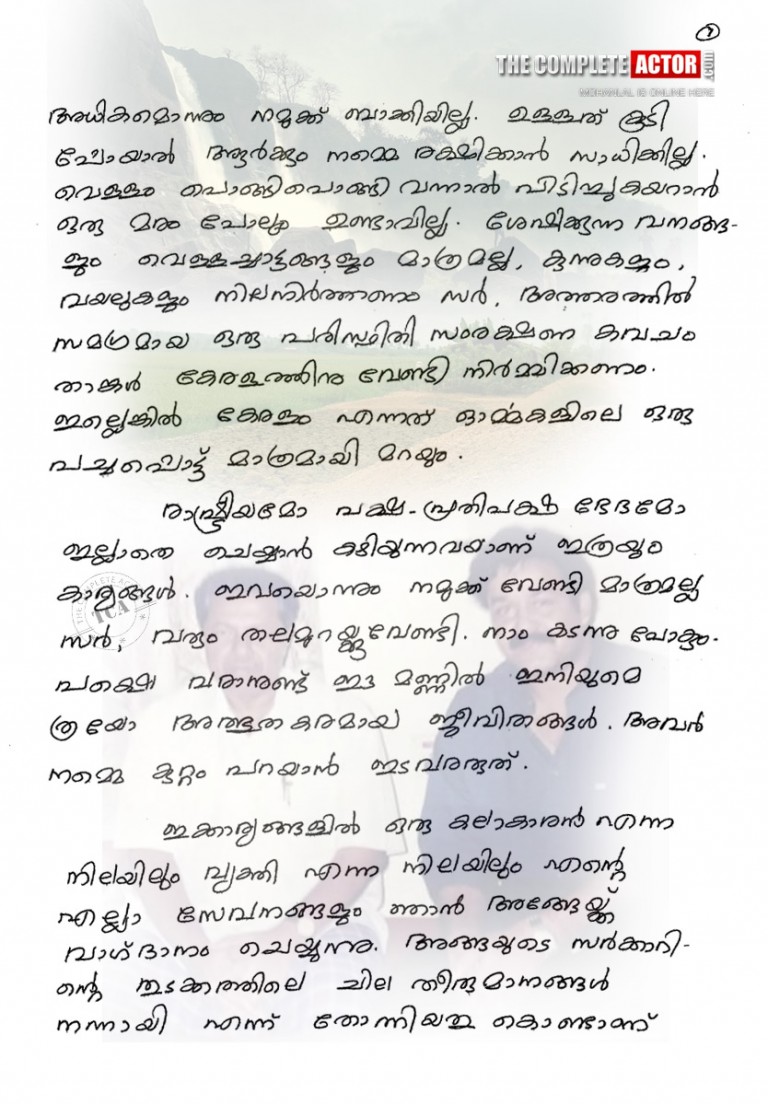 ൭
THE COMPLETE ACTOR .COM
MOHANLAL IS ONLINE HERE
അധികമൊന്നും നമുക്ക് ബാക്കിയില്ല. ഉള്ളത് കൂടി
പോയാൽ ആർക്കും നമ്മെ രക്ഷിക്കാൻ സാധിക്കില്ല.
വെള്ളം പൊങ്ങിപൊങ്ങി വന്നാൽ പിടിച്ചുകയറാൻ
ഒരു മരം പോലും ഉണ്ടാവില്ല. ശേഷിക്കുന്ന വനങ്ങ-
ളും വെള്ളച്ചാട്ടങ്ങളും മാത്രമല്ല, കുന്നുകളും,
വയലുകളും നിലനിർത്തണം സർ, അത്തരത്തിൽ
സമഗ്രമായ ഒരു പരിസ്ഥിതി സംരക്ഷണ കവചം
താങ്കൾ കേരളത്തിനു വേണ്ടി നിർമ്മിക്കണം.
ഇല്ലെങ്കിൽ കേരളം എന്നത് ഓർമ്മകളിലെ ഒരു
പച്ചപ്പൊട്ട് മാത്രമായി മറയും.
രാഷ്ട്രീയമോ പക്ഷ-പ്രതിപക്ഷ ഭേദമോ
ഇല്ലാതെ ചെയ്യാൻ കഴിയുന്നവയാണ് ഇത്രയും
കാര്യങ്ങൾ. ഇവയൊന്നും നമുക്ക് വേണ്ടി മാത്രമല്ല
സർ, വരും തലമുറയ്ക്കുവേണ്ടി. നാം കടന്നു പോകും.
പക്ഷെ വരാനുണ്ട് ഈ മണ്ണിൽ ഇനിയുമെ
ത്രയോ അത്ഭുതകരമായ ജീവിതങ്ങൾ. അവർ
നമ്മെ കുറ്റം പറയാൻ ഇടവരരുത്.
ഇക്കാര്യങ്ങളിൽ ഒരു കലാകാരൻ എന്ന
നിലയിലും വ്യക്തി എന്ന നിലയിലും എന്റെ
എല്ലാ സേവനങ്ങളും ഞാൻ അങ്ങേയ്ക്ക്
വാഗ്ദാനം ചെയ്യുന്നു. അങ്ങയുടെ സർക്കാറി-
ന്റെ തുടക്കത്തിലെ ചില തീരുമാനങ്ങൾ
നന്നായി എന്ന് തോന്നിയതു കൊണ്ടാണ്
THE COMPLETE ACTOR
TCA